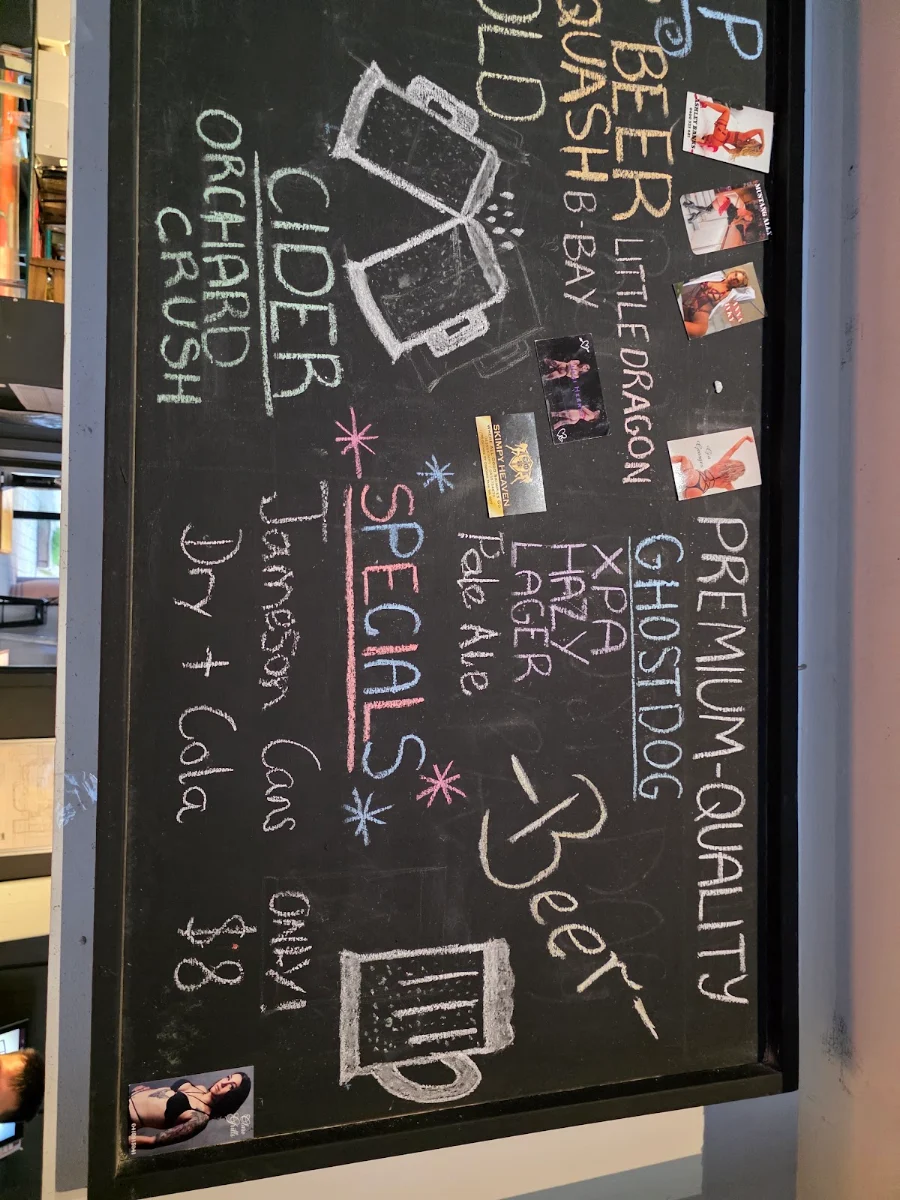 P
PREMIUM-QUALITY
GINGER BEER LITTLE DRAGON
SQUASH B-BAY
OLD
GHOSTDOG
XPA
HAZY
LAGER
Pale Ale
Beer
CIDER
ORCHARD
CRUSH
SPECIALS
Jameson Cans ONLY!
Dry + Cola $8
SKIMPY HEAVEN
ASHLEY BANKS
MUSTANG ALLY